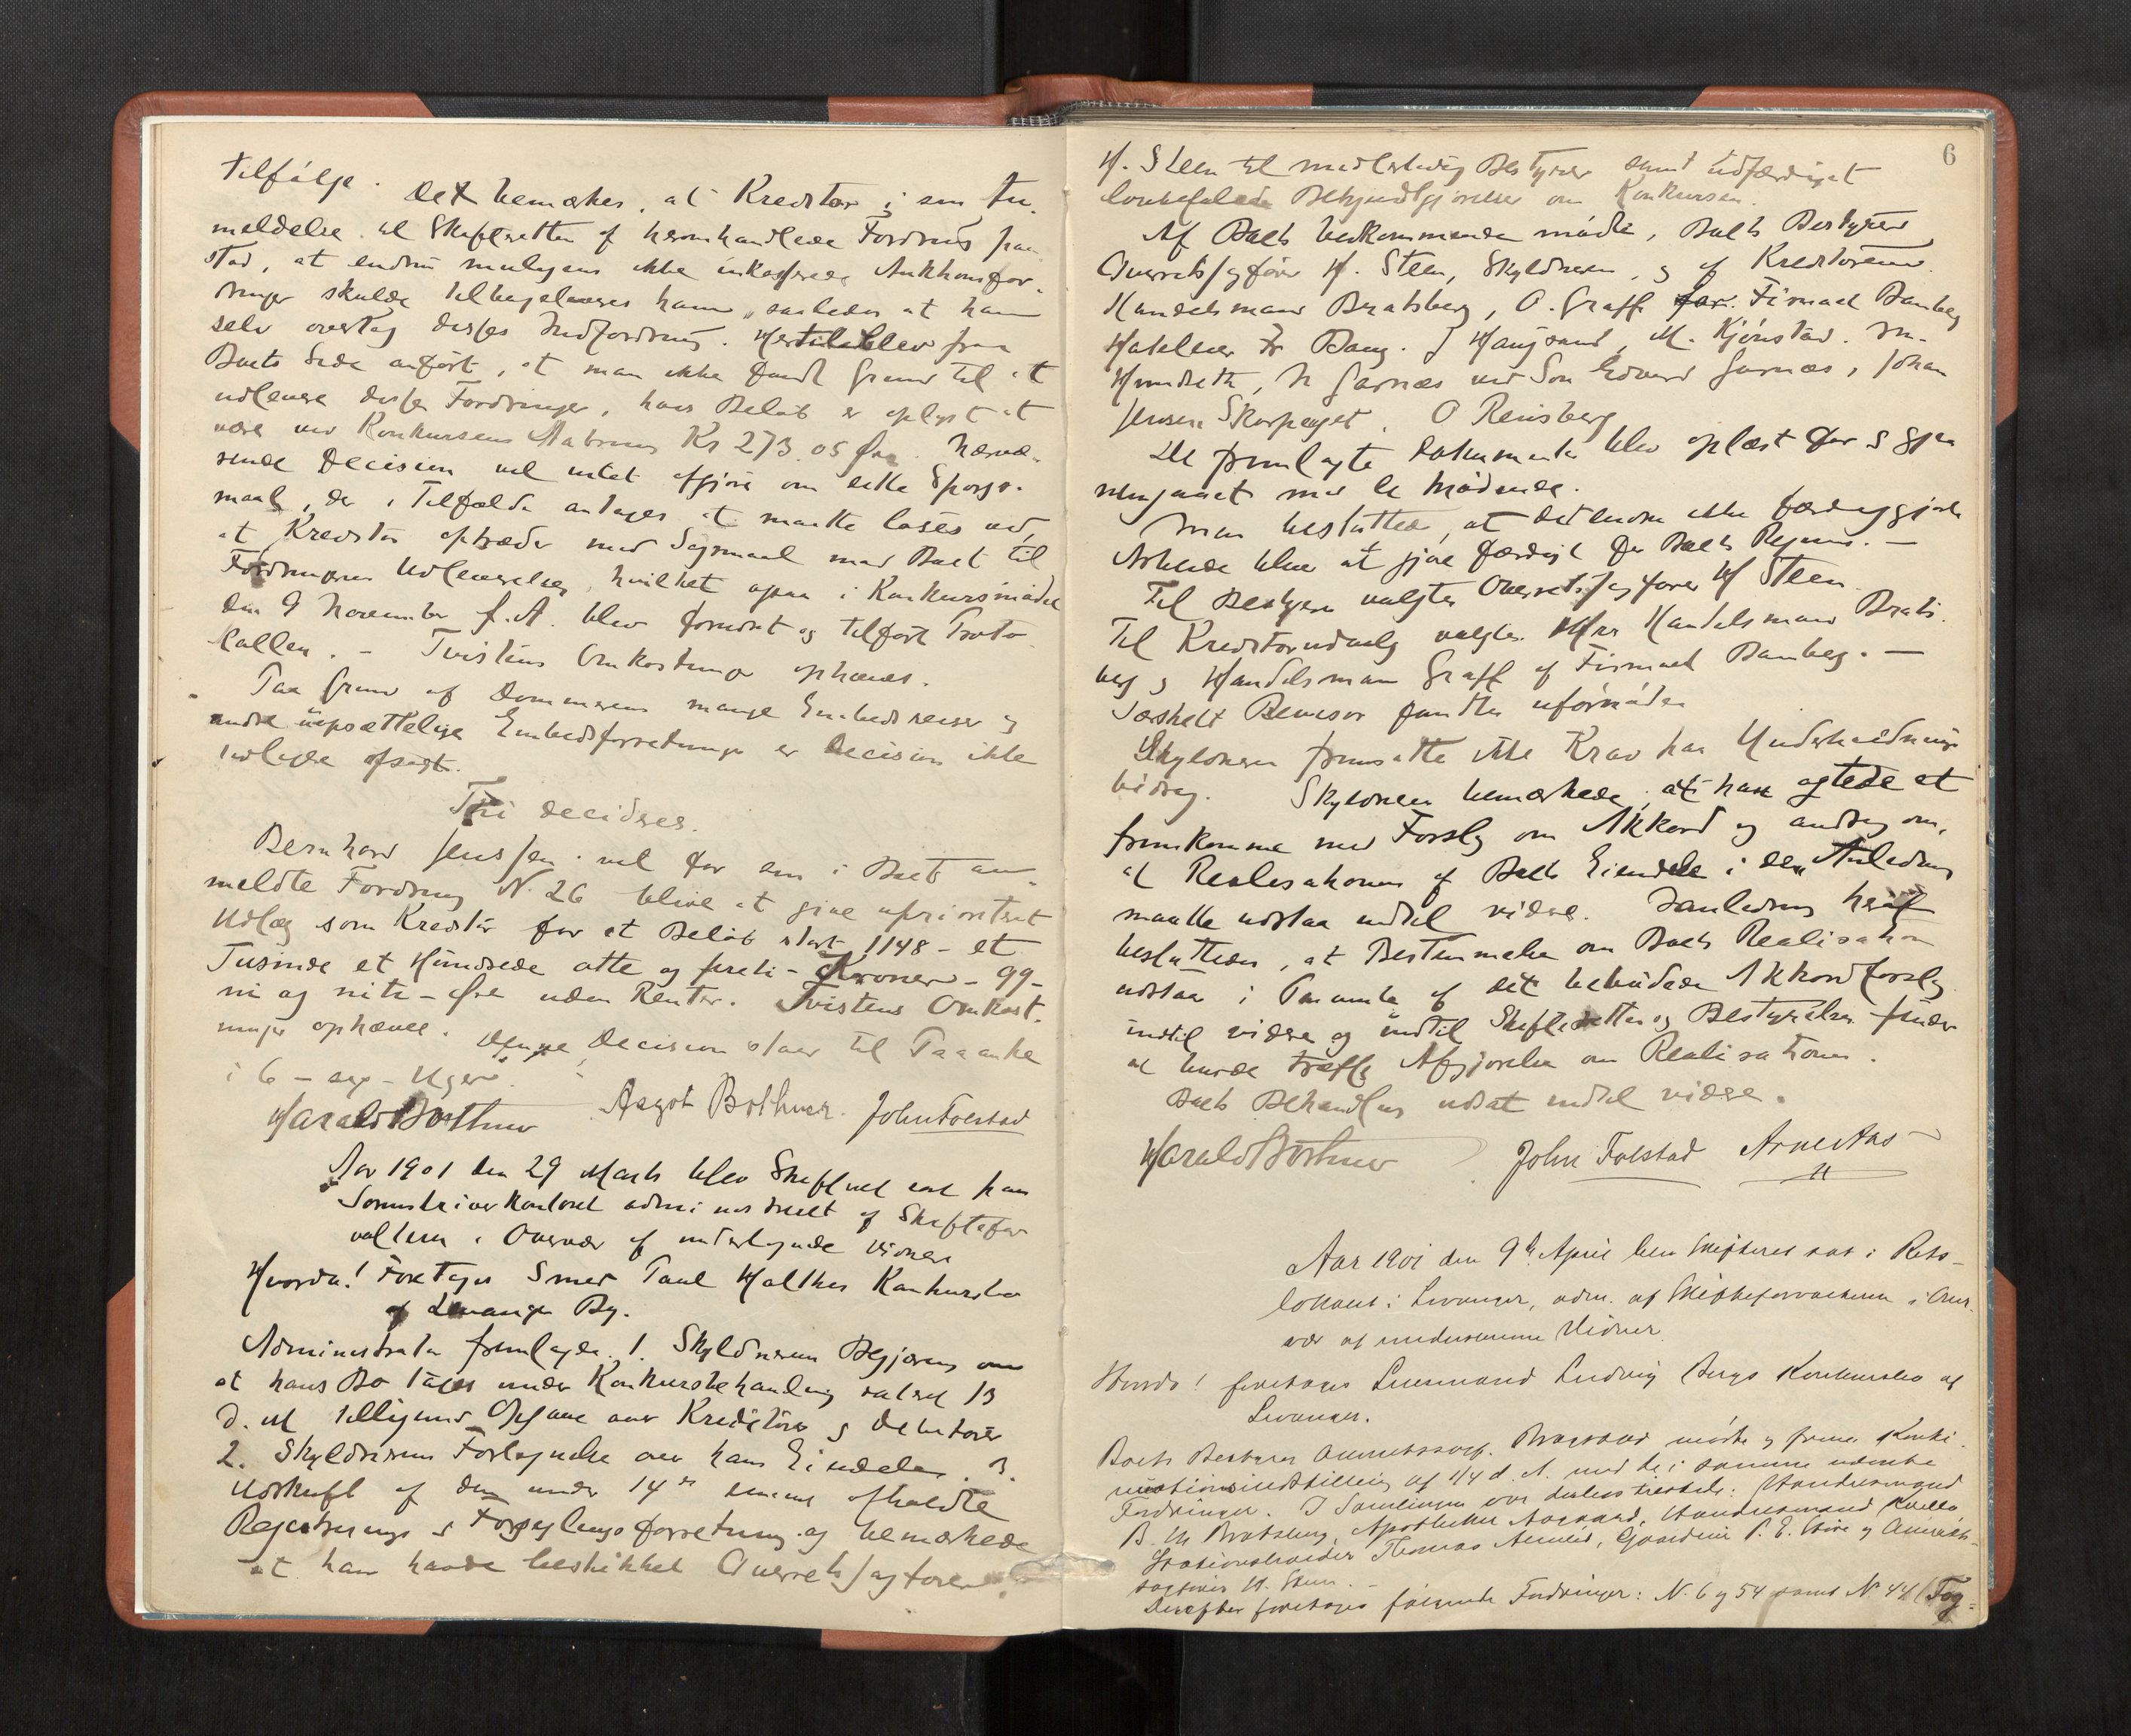 Tilfølge.
Det bemærkes, at Kreditor i sin An-
meldelse til Skifteretten af heromhandlede Fordring paa-
stod, at endnu muligens ikke inkasserede Auktionsfor-
dringer skulde tilbageleveres ham, saaledes at han
selv overtog disses Indfordring. Hertil blev fra
Boets Side anført, at man ikke fandt Grund til at
udlevere disse Fordringer, hvis Beløb er oplyst at
være ved Konkursens Aabning Kr 273.05 Øre. Nærvæ-
rende Decision vil intet afgjøre om dette Spørgs-
maal, der i Tilfælde antages at maatte løses ved,
at Kreditor optræder med Søgsmaal mod Boet til
Fordringens Udleverelse, hvilket ogsaa i Konkursmødet
den 9 November f. A. blev forment og tilført Proto-
kollen. - Tvistens Omkostninger ophæves.
Paa Grund af Dommerens mange Embedsreiser og
andre uopsættelige Embedsforretninger er Decision ikke
tidligere afsagt.
Thi decideres.
Bernhard Jenssen vil for sin i Boet an-
meldte Fordring N. 26 blive at give uprioriteret
Udlæg som Kreditor for et Beløb stort 1148 - et
Tusinde et Hundrede otte og firti - Kroner - 99 -
ni og niti - Øre uden Renter. Tvistens Omkost-
ninger ophæves. Denne Decision staar til Paaanke
i 6 - sex - Uger.
Harald Bothner Aagot Bothner. John Folstad
Aar 1901 den 29 Marts blev Skifteret sat paa
Sorenskriverkontoret administreret af Skiftefor-
valteren i Overvær af undertegnede Vidner
Hvorda! Foretages Smed Paul Holthes Konkursbo
af Levanger By.
Administrator fremlagde 1. Skyldnerens Begjæring om
at hans Bo tages under Konkursbehandling dateret 13
d. M tilligemed Opgave over Kreditorer og Debitorer
2. Skyldnerens Fortegnelse over hans Eiendele. 3.
Udskrift af den under 14de samme afholdte
Registrerings og Forseglingsforretning og bemærkede
at han havde beskikket Overretssagfører
6
H. Steen til midlertidig Bestyrer samt udfærdiget
lovbefalede Bekjendtgjørelser om Konkursen.
Af Boets Vedkommende mødte, Boets Bestyrer
Overretssagfører H. Steen, Skyldneren, og af Kreditorerne
Handelsmand Bratsberg, O. Graff for Firmaet Bamberg
Hoteleier Fr Bang. J Haugsand, M. Kjønstad. M.
Hundseth, N Garnæs ved Søn Edvard Garnæs, Johan
Jensen Skarpeyet. O Reinsberg
De fremlagte Dokumenter blev oplæst for og gjen-
nemgaaet med de Mødende.
Man besluttede, at det endnu ikke færdiggjorte
Arbeide blev at gjøre færdigt for Boets Regning. -
Til Bestyrer valgtes Overretssagfører H Steen
Til Kreditorudvalg valgtes Hrr Handelsmand Brats-
berg og Handelsmand Graff af Firmaet Bamberg. -
Særskilt Revisor fandtes ufornøden
Skyldneren fremsatte ikke Krav paa Underholdnings
bidrag. Skyldneren bemærkede, at han agtede at
fremkomme med Forslag om Akkord og androg om,
at Realisationen af Boets Eiendele i den Anledning
maatte udstaa indtil videre. I Anledning heraf
besluttedes, at Bestemmelse om Boets Realisation
udstaar i Paavente af det bebudede Akkordforslag
indtil videre og indtil Skifteretten og Bestyrelsen finder
at burde træffe Afgjørelse om Realisationen.
Boets Behandling udsat indtil videre.
Harald Bothner John Folstad Arne Aas
Aar 1901 den 9de April blev Skifteret sat i Rets-
lokalet i Levanger, adm. af Skifteforvalteren i Over-
vær af undertegnede Vidner.
Hvorda! foretages Lensmand Ludvig Bergs Konkursbo af
Levanger.
Boets Bestyrer Overretssagf. mødte og frem Konti-
nuationsindstilling af 1/4 d. A. med de i samme nævnte
Fordringer. I Samlingen var derhos tilstede: Handelsmand
B. M Bratsberg, Apotheker Aagaard, Handelsmand
Stationsholder Thomas, Gaardeier P. E. og Overrets-
sagfører H. Steen. -
Derefter foretages følgende Fordringer: N. 6 og 54 samt N 44 (Fog-